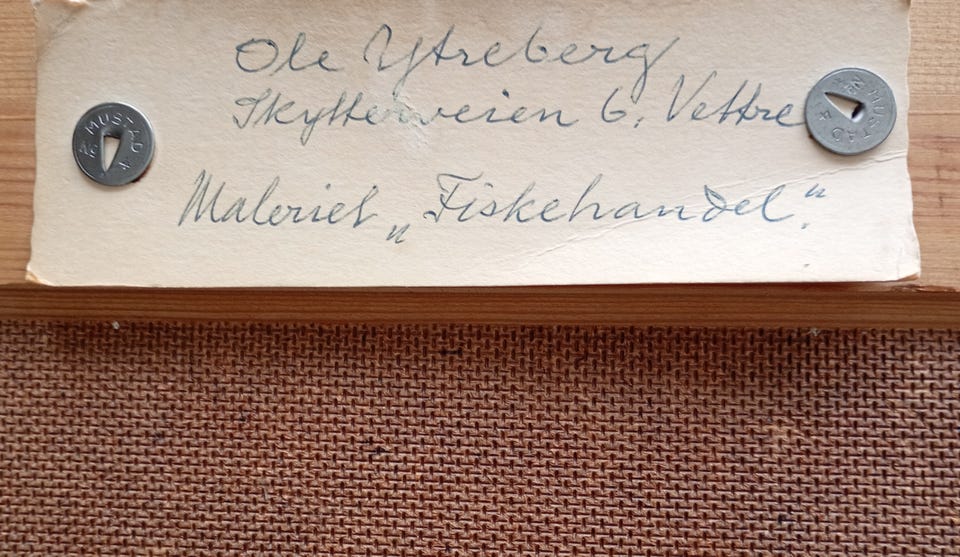 Ole Ytreberg
Skytterveien 6. Vettre
Maleriet „Fiskehandel."
MUSTAD 4
No
MUSTAD 4
No